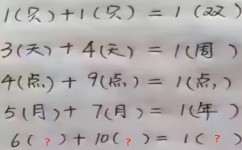 1(只)+1(只) = 1(双)
3(天)+4(天) = 1(周)
4(点)+9(点) = 1(点)
5(月)+7(月) = 1(年)
6(?)+10(?) = 1(?)